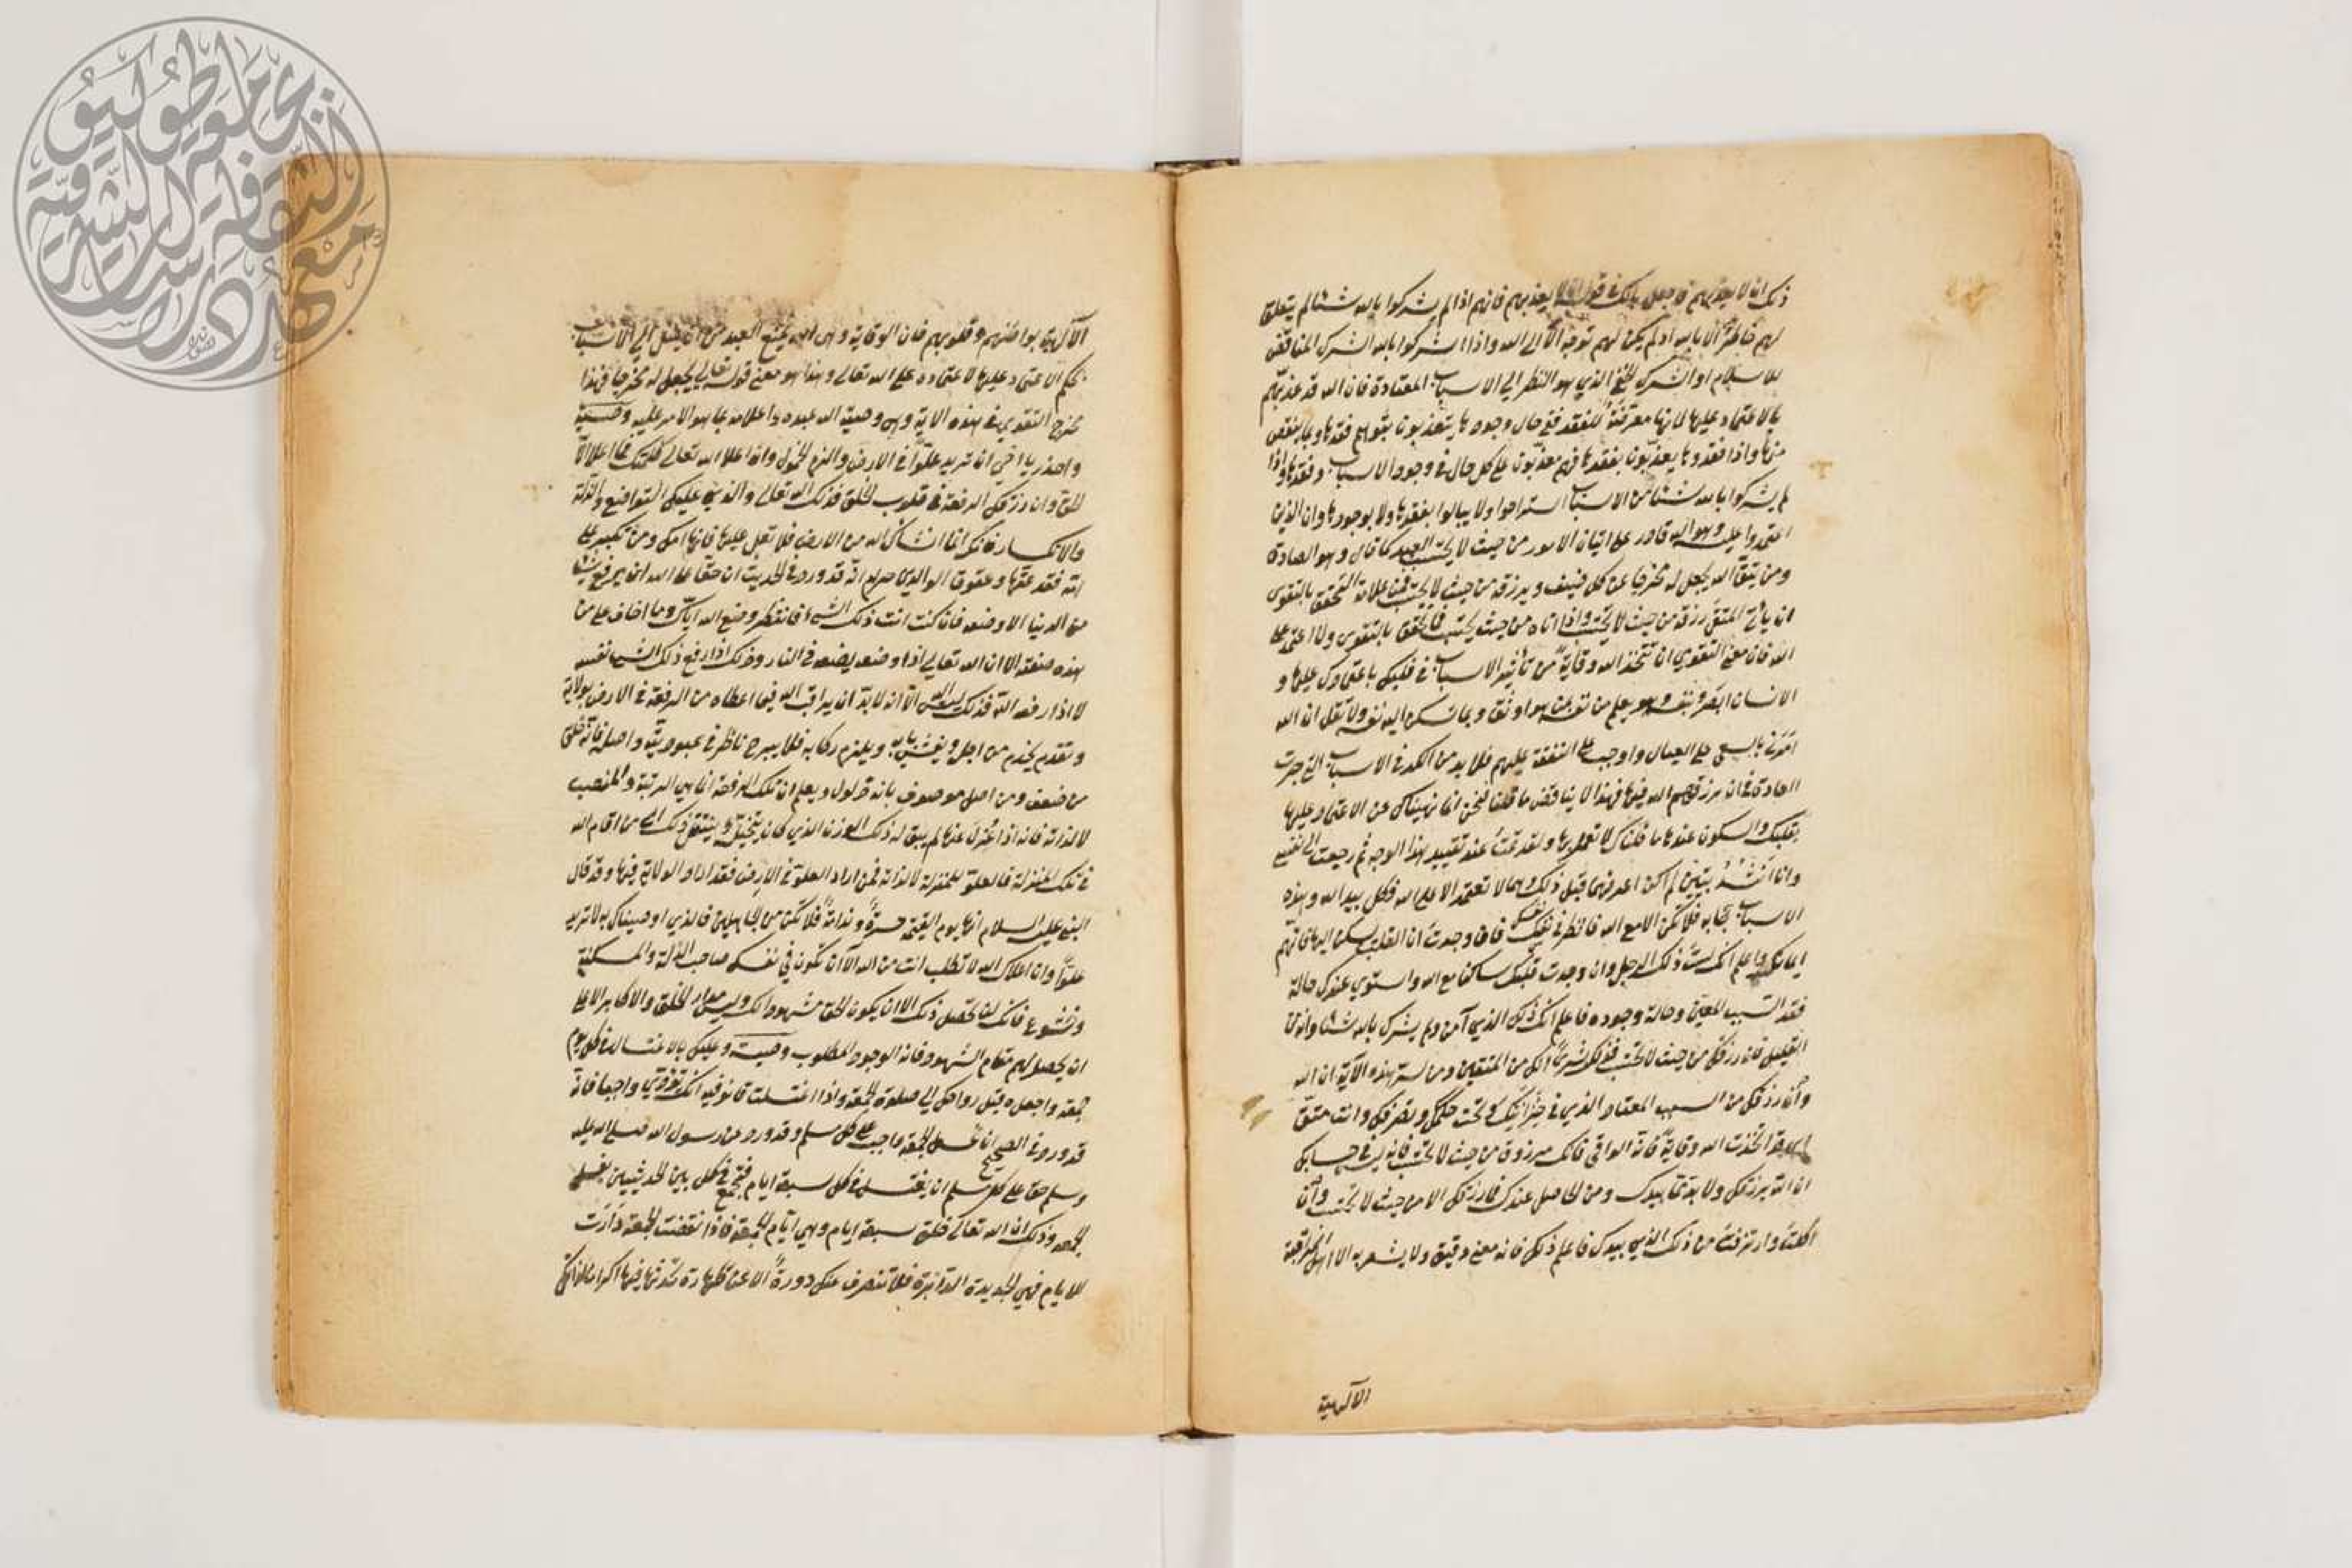 ذلك ان لا يعذبهم فاجعل بالك في قوله ان لا يعذبهم فانهم اذا لم يشركوا بالله شيئا لم يتعلق
لهم خاطر الا بالله اذ لم يكن لهم توجه الا الى الله واذا اشركوا بالله الشرك المناقض
للاسلام او الشرك الخفي الذي هو النظر الى الاسباب المعتادة فان الله قد عذبهم
بالاعتماد عليها لانها معرضة للفقد ففي حال وجودها يتعذبون بتوهم فقدها وبما ينقص
منها واذا فقدوها يعذبون بفقدها فهم معذبون على كل حال في وجود الاسباب وفقدها واذا
لم يشركوا بالله شيئا من الاسباب استراحوا ولا يبالوا بفقدها ولا بوجودها وان الذي
اعتمدوا عليه وهو الله قادر على اتيان الامور من حيث لا يحتسب العبد كما قال وهو الصادق
ومن يتق الله يجعل له مخرجا عن كل ضيق ويرزقه من حيث لا يحتسب فمن علامة التحقق بالتقوى
ان ياتي المتقي رزقه من حيث لا يحتسب واذا اتاه من حيث يحتسب فما تحقق بالتقوى ولا اعتمد على
الله فان معنى التقوى ان تتخذ الله وقاية من تأثير الاسباب في قلبك باعتمادك عليها و
الانسان ابصر بنفسه وهو يعلم من نفسه بمن هو اوثق وبما تسكن اليه نفسه ولا تقل ان الله
امرني بالسعي على العيال واوجب علي النفقة عليهم فلا بد من الكد في الاسباب التي جرت
العادة ان يرزقهم الله فيها فهذا لا يناقض ما قلنا فنحن انما نهيناك عن الاعتماد عليها
بقلبك والسكون عندها ما قلنا لك لا تعملها ولقد نمت عند تقييد هذا الوجه ثم رجعت الى نفسي
وانا انشد بيتين لم اكن اعرفهما قبل ذلك وهما لا تعتمد الا على الله فكل بيد الله وهذه
الاسباب حجابه فلا تكن الا مع الله فانظر في نفسك فان وجدت ان القلب سكن اليها فاتهم
ايمانك واعلم انك لست ذلك الرجل وان وجدت قلبك ساكنا مع الله واستوى عندك حالة
فقد السبب المعين وحالة وجوده فاعلم انك ذلك الذي آمن ولم يشرك بالله شيئا وانك من
القليل فان رزقك من حيث لا تحتسب فذلك بشرى انك من المتقين ومن سر هذه الآية ان الله
وان رزقك من السبب المعتاد الذي في خزانتك وتحت حكمك وتصرفك وانت متق
اتخذت الله وقاية فانه الواقي فانك مرزوق من حيث لا تحتسب فانه ليس في حسابك
ان الله يرزقك ولا بد مما بيدك ومن الحاصل عندك فما رزقك الا من حيث لا تحتسب وان
اكلت وارتزقت من ذلك الذي بيدك فاعلم ذلك فانه معنى دقيق ولا يشعر به الا اهل المراقبة
الآلهية
الآلهية بواطنهم وقلوبهم فان الوقاية وهي الله يمنع العبد من ان يصل الى الاسباب
بحكم الاعتماد عليها لاعتماده على الله تعالى وهذا هو معنى قوله تعالى يجعل له مخرجا فهذا
مخرج التقوى في هذه الاية وهي وصية الله عبده واعلامه بما هو الامر عليه وصية
واحذر يا اخي ان تريد علوا في الارض والزم الخمول وان اعلا الله تعالى كلمتك فما اعلا الا
الحق وان رزقك الرفعة في قلوب الخلق فذلك اليه تعالى والذي عليك التواضع والذلة
والانكسار فانك انما انشأك الله من الارض فلا تعل عليها فانها امك ومن تكبر على
امه فقد عقها وعقوق الوالدين حرام انه قد ورد في الحديث ان حقا على الله ان لا يرفع شيئا
من الدنيا الا وضعه فان كنت انت ذلك الشيء فانتظر وضع الله اياك وما اخاف على من
هذه صفته الا ان الله تعالى اذا وضعه يضعه في النار وذلك اذا رفع ذلك الشيء نفسه
لا اذا رفعه الله فذلك ليس اليه الا انه لا بد ان يراقب الله فيما اعطاه من الرفعة في الارض بولاية
وتقدم يخدم من اجله ويغشى بابه ويلزم ركابه فلا يبرح ناظرا في عبوديته واصله فانه خلق
من ضعف ومن اصل موصوف بانه ذلول ويعلم ان تلك الرفعة انما هي للرتبة والمنصب
لا لذاته فانه اذا عزل عنها لم يبق له ذلك الوزن الذي كان يتخيله وينتقل ذلك الى من اقام الله
في تلك المنزلة فالعلو للمنزلة لا لذاته فمن اراد العلو في الارض فقد اراد الولاية فيها وقد قال
النبي عليه السلام انها يوم القيمة حسرة وندامة فلا تكن من الجاهلين فالذي اوصيناك به لا تريد
علوا وان اعلاك الله لا تطلب انت من الله الا ان تكون في نفسك صاحب الذلة والمسكنة
وخشوع فانك لن تحصل ذلك الا ان يكون الحق مشهودا لك وليس مدار الخلق والاكابر الا على
ان يحصل لهم مقام الشهود فانه الوجود المطلوب وصية وعليك بالاغتسال في كل يوم
جمعة واجعله قبل رواحك الى صلوة الجمعة واذا اغتسلت فانو فيه انك تؤدي واجبا فانه
قد ورد في الصحيح ان غسل الجمعة واجب على كل مسلم وقد ورد عن رسول الله صلى الله عليه
وسلم حق على كل مسلم ان يغتسل في كل سبعة ايام فتجمع في كل بين الحديثين بغسل
الجمعة وذلك ان الله تعالى خلق سبعة ايام وهي ايام الجمعة فاذا انقضت الجمعة دارت
الايام فهي الجديدة الدائرة فلا تنصرف عنك دورة الا عن طهارة تحدثها فيها اكراما لذلك